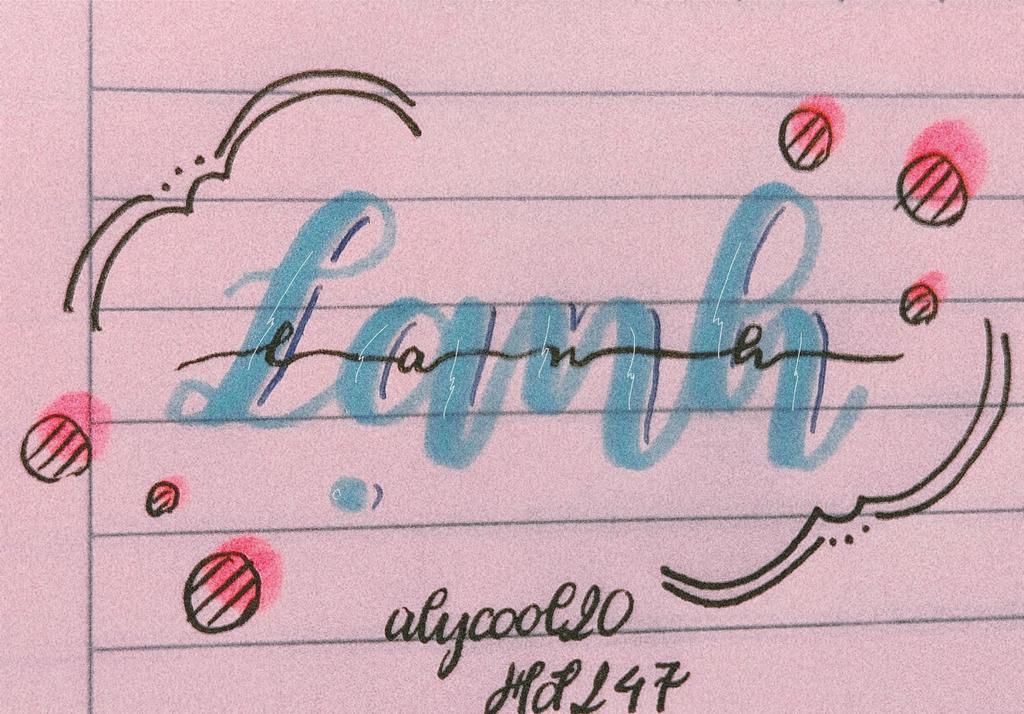 Lạnh
lanh
alycool20
HL247